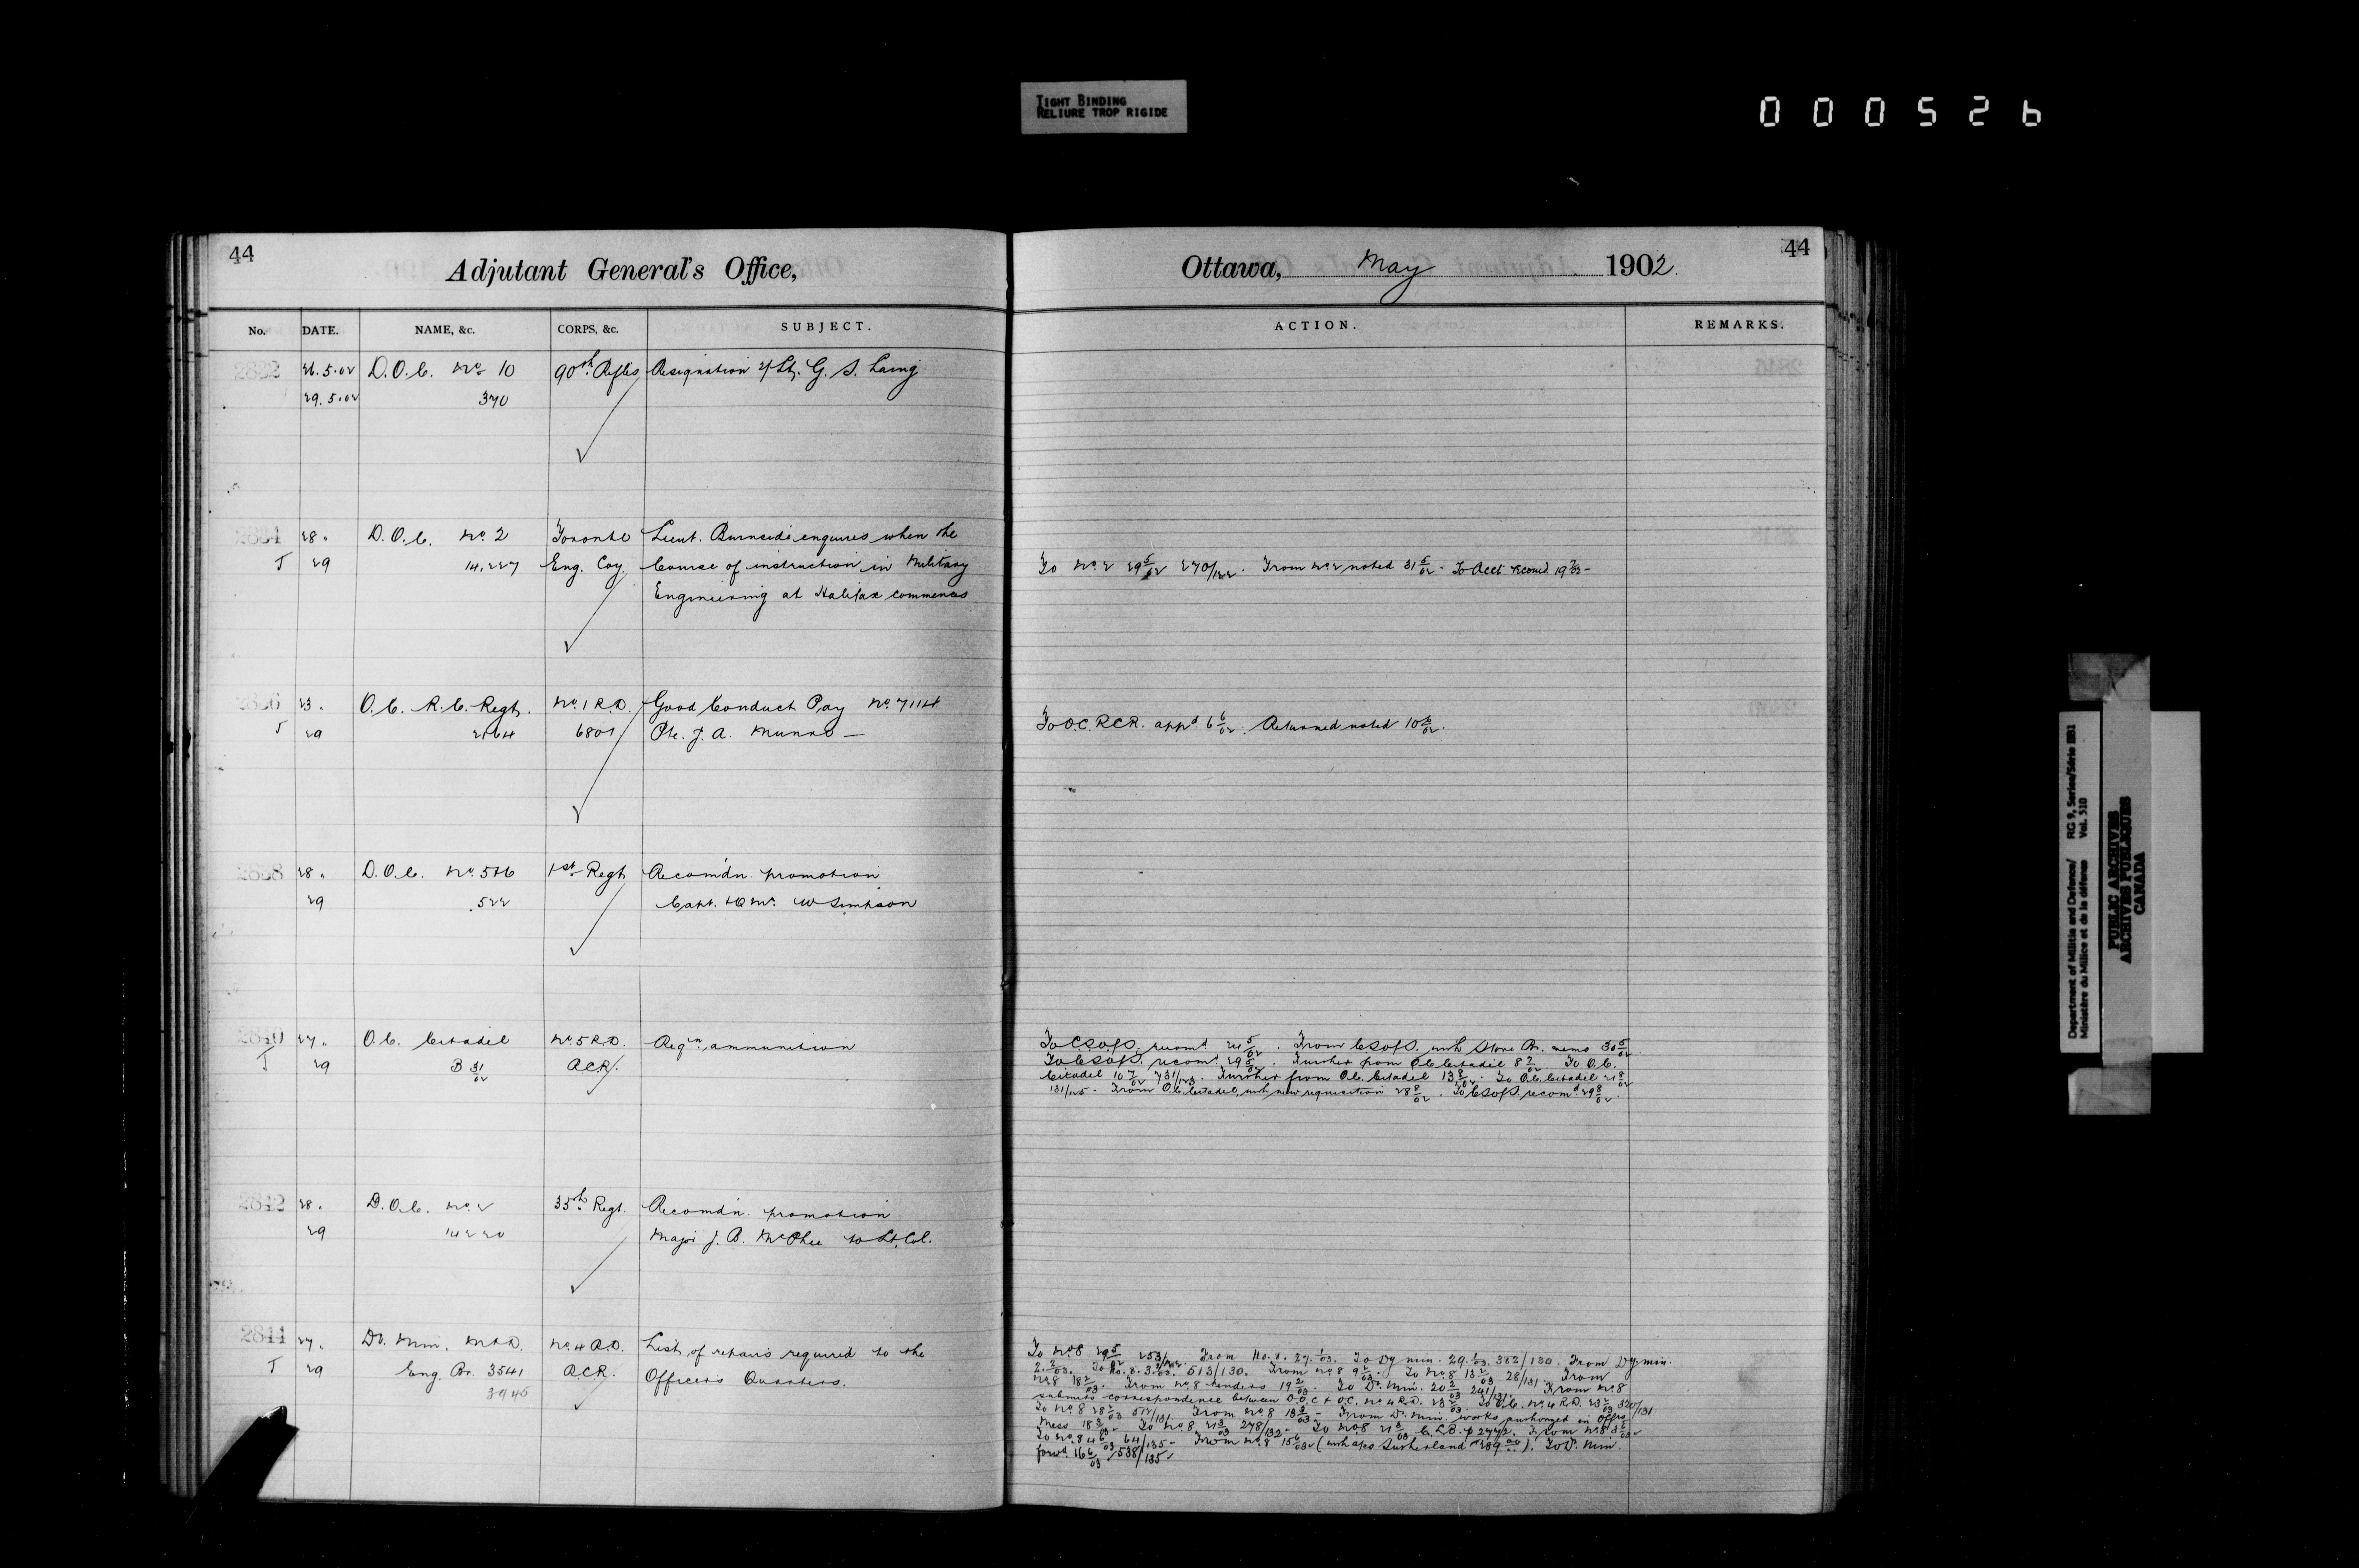 TIGHT BINDING
RELIURE TROP RIGIDE
000526
44
Adjutant General's Office,
No. DATE. NAME, &c. CORPS, &c. SUBJECT.
2832 26.5.02 D.O.C. No. 10 90th Rifles Resignation of Lt. G. S. Laing
29.5.02 370
2834 28 " D.O.C. No. 2 Toronto Lieut. Burnside enquires when the
T 29 14,227 Eng. Coy. Course of instruction in Military
Engineering at Halifax commences
2836 23 " O.C. R.C. Regt. No. 1 R.D. Good Conduct Pay No. 7114
T 29 2164 6801 Pte. J. A. Munro —
2838 28 " D.O.C. No. 5&6 1st Regt Recomdn. promotion
29 522 Capt. & Q.M. W Simpson
2840 27 " O.C. Citadel No. 5 R.D. Reqn. ammunition
T 29 B 31/02 RCR.
2842 28 " D.O.C. No. 2 35th Regt. Recomdn. promotion
29 14220 Major J. B. McPhee to Lt. Col.
2844 27 " D. Min. M&D. No. 4 R.D. List of repairs required to the
T 29 Eng. Br. 3541 RCR. Officers Quarters.
3945
44
Ottawa, May 1902.
ACTION. REMARKS.
To No. 2 29 5/02 270/122. From No. 2 noted 31 5/02 - To Acct
To O.C. RCR. appd 6 6/02. Returned noted 10 6/02.
To CSofS. recomd. 5/02. From CSofS. with Store Br. memo 30 5/02
To CSofS. recomd. 29 5/02. Further from O.C. Citadel 8 7/02 To O.C.
Citadel 10 7/02 731/123. Further from O.C. Citadel 13 8/02. To O.C. Citadel 21 8/02
131/125 - From O.C. Citadel, with new requisition 28 8/02. To CSofS. recomd 29 8/02.
To No. 8 29 5/02 253/ From No. 8. 27. 1/03. To Dy min. 29. 1/03. 382/130. From Dy. min.
2. 2/03. To No. 8. 3. 2/03. 513/130. From No. 8 9 2/03. To No. 8 13 2/03 28/131. From
No. 8 18 2/03. From No. 8 tenders 19 2/03. To D. Min. 20 2/03 241/131. From No. 8
submits correspondence between D.O.C & O.C. No. 4 R.D. 23 2/03. To O.C. No. 4 R.D. 23 2/03 320/131
To No. 8 28 2/03 512/131 From No. 8 13 3/03 - From D. Min. works authorized in Offrs.
Mess 18 3/03 - To No. 8 21 3/03 278/132 - To No. 8 21 3/03
To No. 8 4 6/03 64/135 - From No. 8 15 6/03 (with a/cs Sutherland $389.00). To D. Min.
forwd. 16 6/03 538/135
Department of Militia and Defence/ RG 9, Series/Série IIB1
Ministère du Milice et de la défense Vol. 510
PUBLIC ARCHIVES
ARCHIVES PUBLIQUES
CANADA